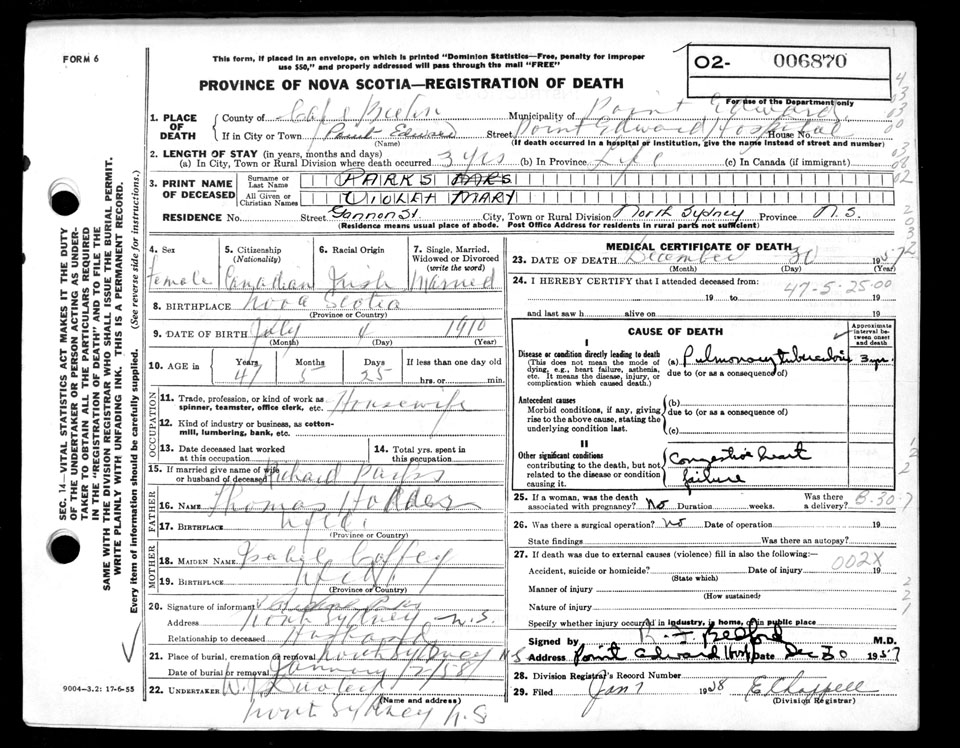 FORM 6
This form, if placed in an envelope, on which is printed "Dominion Statistics—Free, penalty for improper
use $50," and properly addressed will pass through the mail "FREE"
PROVINCE OF NOVA SCOTIA—REGISTRATION OF DEATH
02- 006870
For use of the Department only
1. PLACE OF DEATH
County of Cape Breton Municipality of Point Edward
If in City or Town Point Edward Street Point Edward Hospital House No.
(Name) (If death occurred in a hospital or institution, give the name instead of street and number)
2. LENGTH OF STAY (in years, months and days)
(a) In City, Town or Rural Division where death occurred 3 yrs (b) In Province Life (c) In Canada (if immigrant)
3. PRINT NAME OF DECEASED
Surname or Last Name PARKS
All Given or Christian Names VIOLET MARY
RESIDENCE No. Street Gannon St. City, Town or Rural Division North Sydney Province N.S.
(Residence means usual place of abode. Post Office Address for residents in rural parts not sufficient)
4. Sex Female
5. Citizenship (Nationality) Canadian
6. Racial Origin Irish
7. Single, Married, Widowed or Divorced (write the word) Married
8. BIRTHPLACE Nova Scotia
(Province or Country)
9. DATE OF BIRTH July 4 1910
(Month) (Day) (Year)
10. AGE in Years 47 Months 5 Days 25 If less than one day old
hrs. or min.
OCCUPATION
11. Trade, profession, or kind of work as
spinner, teamster, office clerk, etc. Housewife
12. Kind of industry or business, as cotton-
mill, lumbering, bank, etc.
13. Date deceased last worked
at this occupation
14. Total yrs. spent in
this occupation
15. If married give name of wife
or husband of deceased Richard Parks
FATHER
16. NAME Thomas Hodder
17. BIRTHPLACE Nfld.
(Province or Country)
MOTHER
18. MAIDEN NAME Isabel Coffey
19. BIRTHPLACE Nfld.
(Province or Country)
20. Signature of informant
Address North Sydney N.S.
Relationship to deceased Husband
21. Place of burial, cremation or removal North Sydney N.S
Date of burial or removal January /2/58
22. UNDERTAKER W.J. Dooley
(Name and address)
North Sydney N.S
MEDICAL CERTIFICATE OF DEATH
23. DATE OF DEATH December 30 1957
(Month) (Day) (Year)
24. I HEREBY CERTIFY that I attended deceased from:
47-5-25-00
19 to 19
and last saw h alive on 19
CAUSE OF DEATH
Approximate interval between onset and death
I
Disease or condition directly leading to death
(This does not mean the mode of
dying, e.g., heart failure, asthenia,
etc. It means the disease, injury, or
complication which caused death.)
(a) Pulmonary tuberculosis 3 yrs.
due to (or as a consequence of)
Antecedent causes
Morbid conditions, if any, giving
rise to the above cause, stating the
underlying condition last.
(b)
due to (or as a consequence of)
(c)
II
Other significant conditions
contributing to the death, but not
related to the disease or condition
causing it.
Congestive heart
failure
25. If a woman, was the death
associated with pregnancy? No Duration weeks. Was there a delivery?
B-30-7
26. Was there a surgical operation? No Date of operation 19
State findings Was there an autopsy?
27. If death was due to external causes (violence) fill in also the following:—
002X
Accident, suicide or homicide? Date of injury 19
(State which)
Manner of injury
(How sustained)
Nature of injury
Specify whether injury occurred in industry, in home, or in public place
Signed by M.D.
Address Point Edward Hosp Date Dec 30 1957
28. Division Registrar's Record Number
29. Filed Jan 7 1958 E Chappell
(Division Registrar)
SEC. 14—VITAL STATISTICS ACT MAKES IT THE DUTY
OF THE UNDERTAKER OR PERSON ACTING AS UNDER-
TAKER TO OBTAIN ALL THE PARTICULARS REQUIRED
IN THE "REGISTRATION OF DEATH" AND TO FILE THE
SAME WITH THE DIVISION REGISTRAR WHO SHALL ISSUE THE BURIAL PERMIT.
WRITE PLAINLY WITH UNFADING INK. THIS IS A PERMANENT RECORD.
Every item of information should be carefully supplied. (See reverse side for instructions.)
9004—3.2: 17-6-55